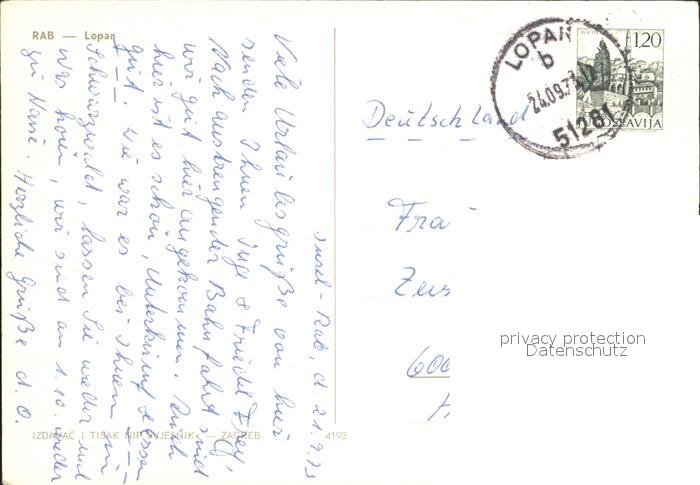 RAB — Lopar
Insel-Rab, d. 21.9.73
Viele Urlaubsgrüße von hier
senden Ihnen Inge & Friedel Frey,
Nach anstrengender Bahnfahrt sind
wir gut hier angekommen. Auch
hier ist es schön, Unterkunft & Essen
gut. Wie war es bei Ihnen im
Schwarzwald, lassen Sie wieder mal
was hören, wir sind am 1.10. wieder
zu Hause. Herzliche Grüße d. O.
IZDAVAČ I TISAK NIP »VJESNIK« — ZAGREB
4193
LOPAR
b
24.09.73
51281
1,20
JUGOSLAVIJA
Deutschland
Fra
600
privacy protection
Datenschutz